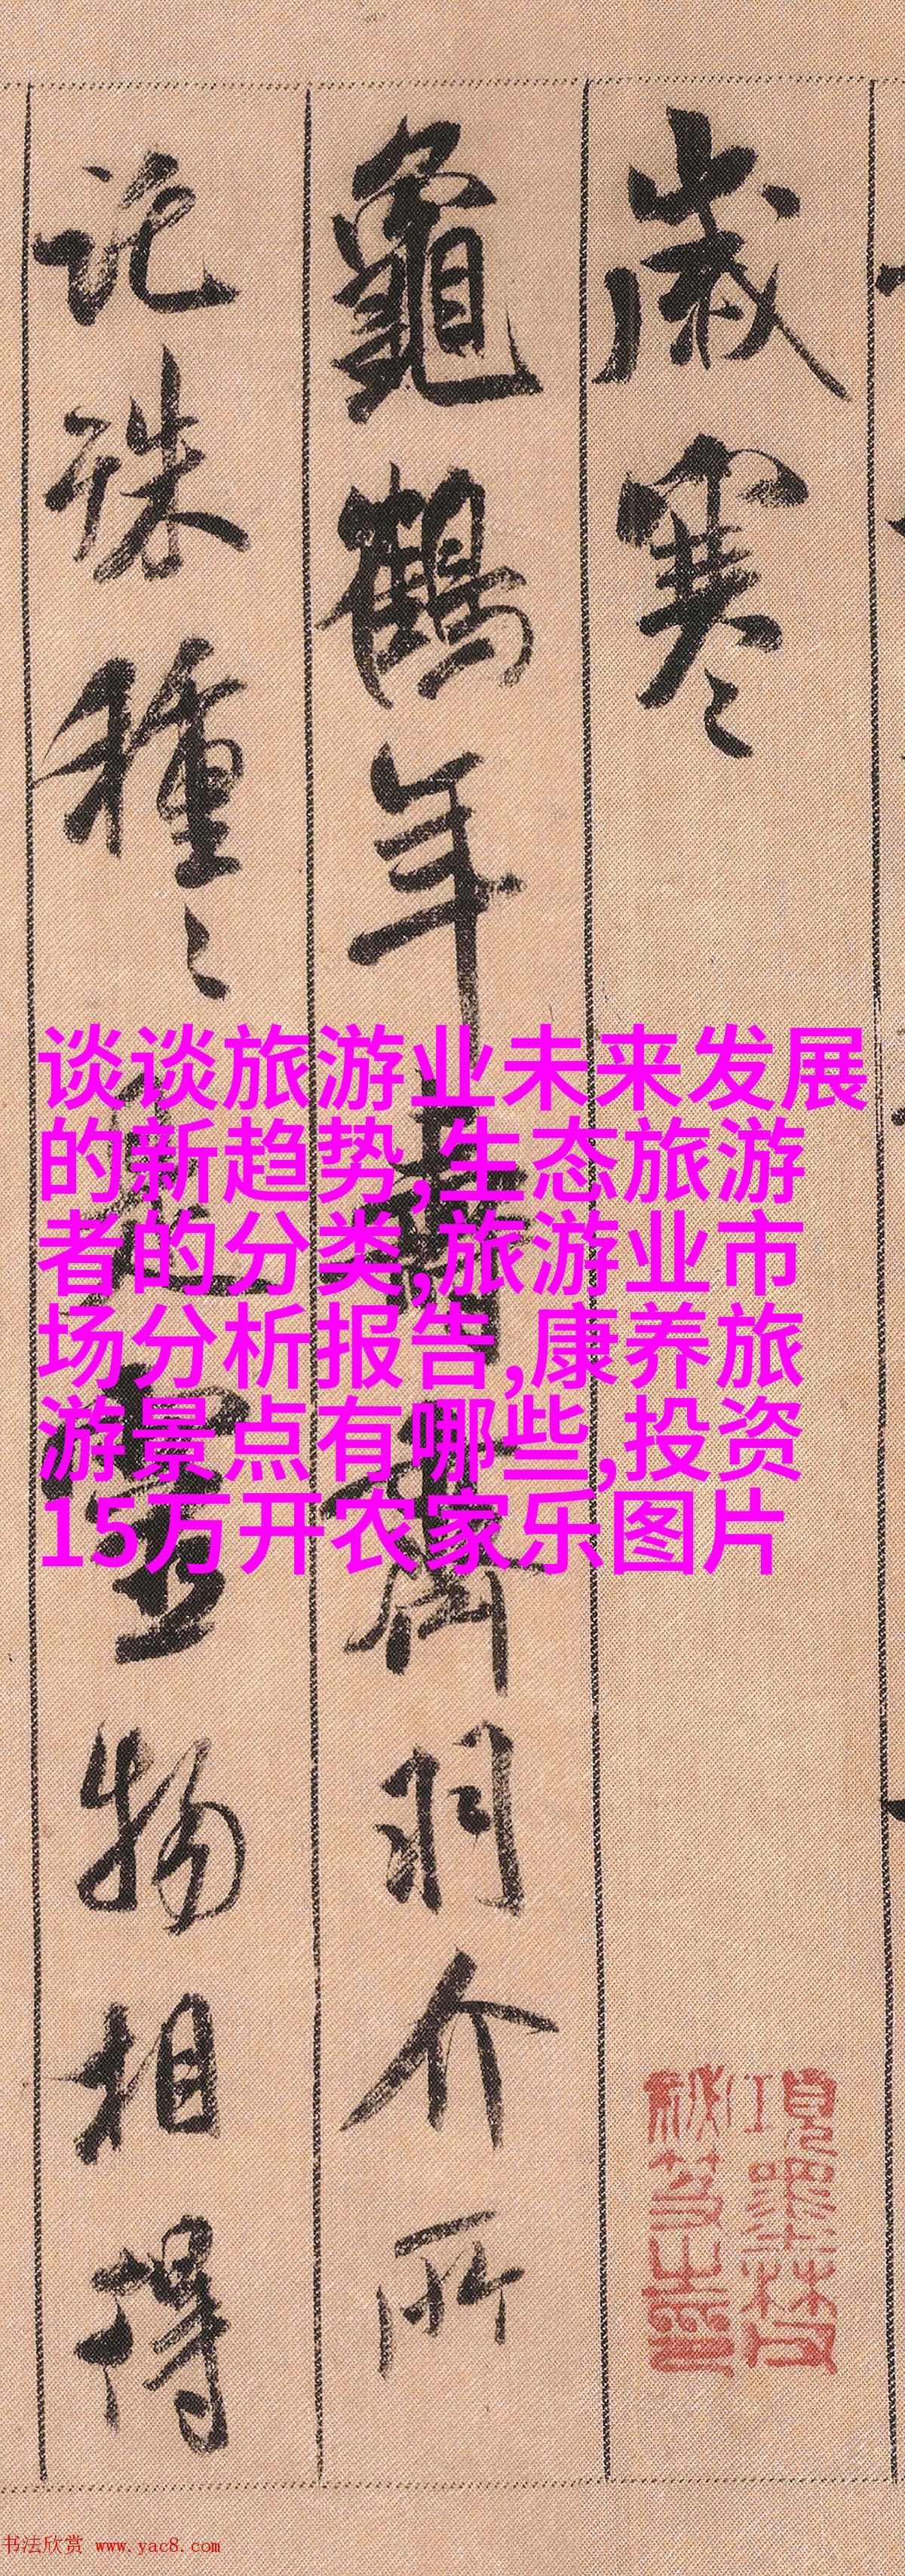 歲寒
龜鶴年壽齊羽介所
託殊種種是靈物相得
谈谈旅游业未来发展
的新趋势,生态旅游
者的分类,旅游业市
场分析报告,康养旅
游景点有哪些,投资
15万开农家乐图片
項墨林父
祕笈之印
书法欣赏 www.yac8.com